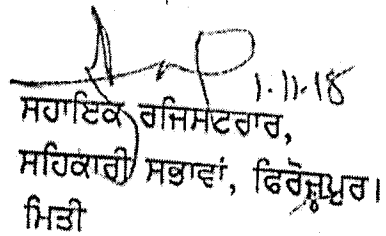 1.11.18
ਸਹਾਇਕ ਰਜਿਸਟਰਾਰ,
ਸਹਿਕਾਰੀ ਸਭਾਵਾਂ, ਫਿਰੋਜ਼ਪੁਰ।
ਮਿਤੀ